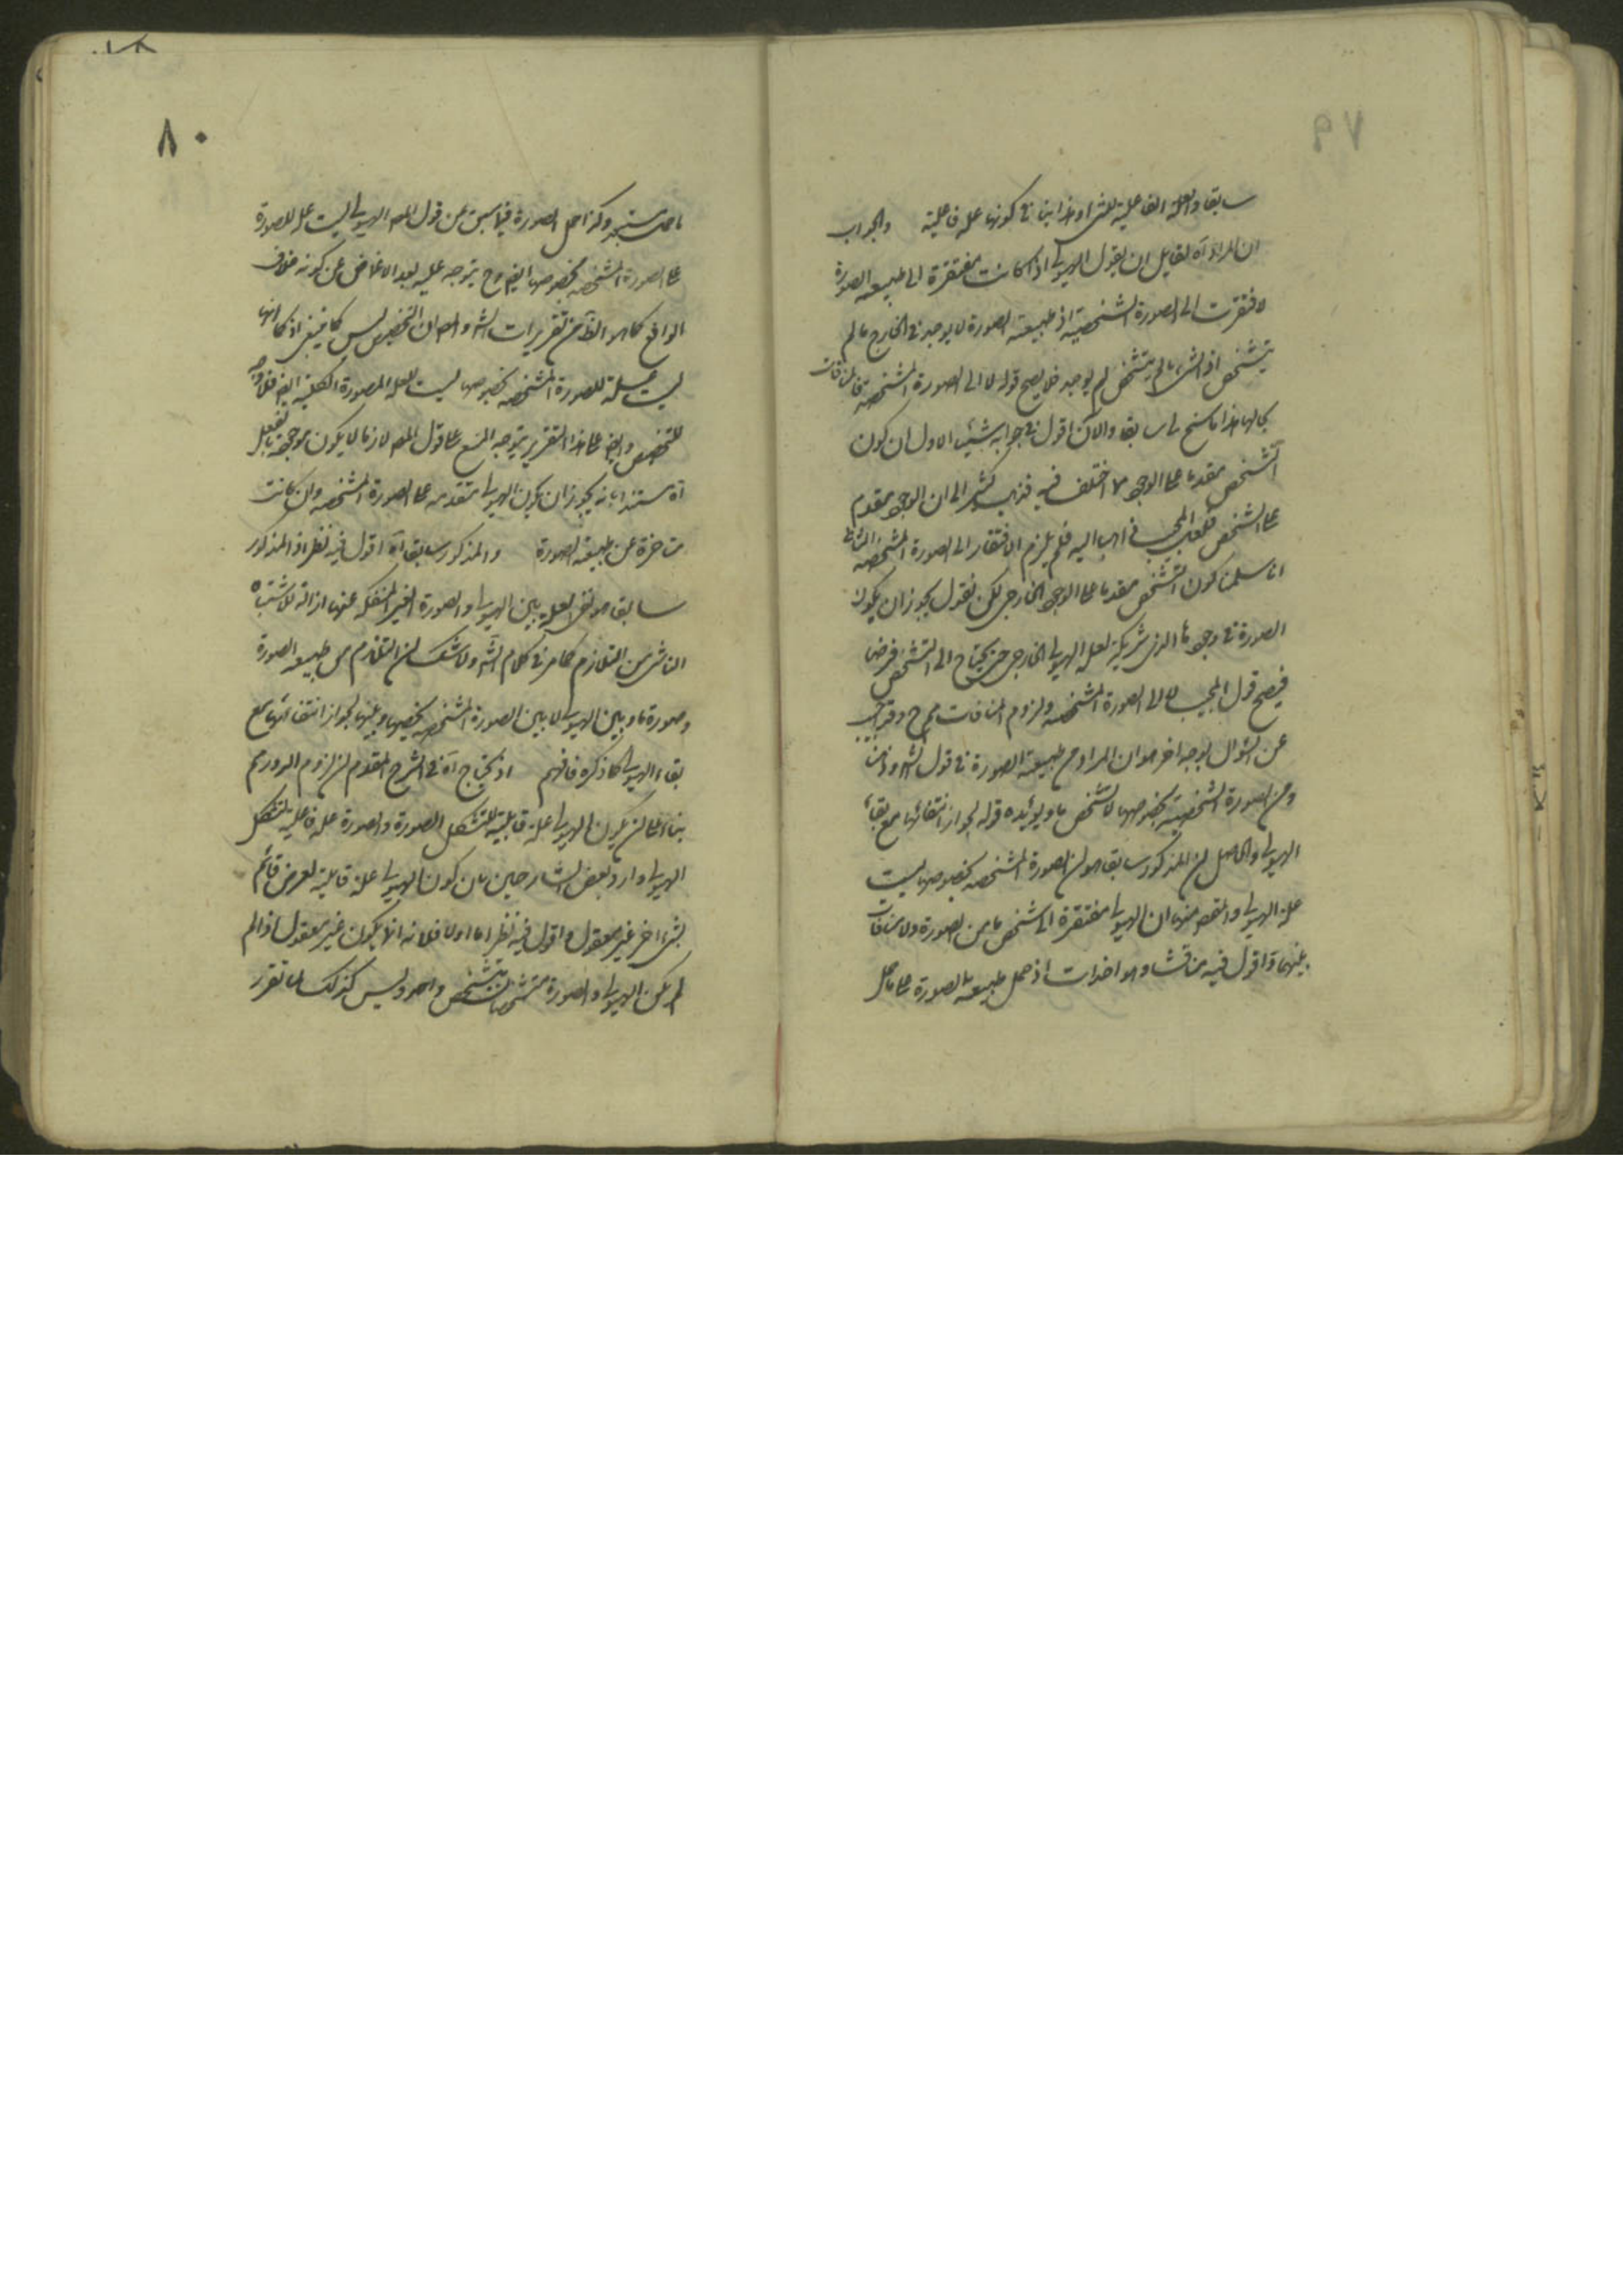 ٧٩
سابقا والعلة الفاعلية للشئ وهذا ينافي كونها علة فاعلية والجواب
ان المراد آه لقايل ان يقول الهيولى اذا كانت مفتقرة الى طبيعة الصورة
لافتقرت الى الصورة الشخصية اذ طبيعة الصورة لا يوجد في الخارج ما لم
يتشخص اذ الشئ ما لم يتشخص لم يوجد فلا يصح قوله لا الى الصورة المشخصة فالمنافات
بحالها هذا ما سنح لي سابقا والآن اقول في جوابه شيئين الاول ان كون
التشخص مقدما على الوجود مما اختلف فيه فذهب كثير الى ان الوجود مقدم
على التشخص فلعل المجيب ذاهب اليه فلم يلزم الافتقار الى الصورة المشخصة الثاني
انا سلمنا كون التشخص مقدما على الوجود الخارجي لكن نقول يجوز ان يكون
الصورة في وجودها الذي شريكة لعلة الهيولى الخارجي حتى يحتاج الى التشخص فرض
فيصح قول المجيب لا الى الصورة المشخصة ولزوم المنافات مم ح وقد اجيب
عن السؤال بوجه اخر هو ان المراد من طبيعة الصورة في قول الش
ومن الصورة الشخصية بخصوصها لا تشخص ما ويؤيده قوله لجواز انتفائها مع بقاء
الهيولى والحاصل ان المذكور سابقا هو ان الصورة المشخصة بخصوصها ليست
علة الهيولى والمقصود منها ان الهيولى مفتقرة الى تشخص ما من الصورة ولا منافات
بينهما واقول فيه مناقشات ومواخذات اذ حمل طبيعة الصورة على ما حمل
٨٠
ما حمل مستبعد وكذا حمل الصورة فيما سبق من قول المص الهيولى ليست علة للصورة
على الصورة المشخصة بخصوصها ايضا وح يتوجه عليه بعد الاغماض عن كونه خلاف
الواقع كما هو الظ من تقريرات الش والمص ان التخصيص ليس كما ينبغي اذ كما انها
ليست علة للصورة المشخصة بخصوصها ليست لعلة الصورة الكلية ايضا فلا وجه
للتخصيص وايضا على هذا التقرير يتوجه المنع على قول المص لانها لا يكون موجودة بالفعل
آه مستندا بانه يجوز ان يكون الهيولى متقدمة على الصورة المشخصة وان كانت
متاخرة عن طبيعة الصورة والمذكور سابقا آه اقول فيه نظر اذ المذكور
سابقا هو نفي العلية بين الهيولى والصورة الغير المنفكة عنها ازالة للاشتباه
الناشي من التلازم كما مر في كلام الش ولا شك ان التلازم من طبيعة الصورة
وصورة ما وبين الهيولى لا بين الصورة المشخصة بخصوصها وبينها لجواز انتفائها مع
بقاء الهيولى كما ذكره فافهم اذ يحتاج آه في الشرح المقدم لزوم الدور تم
بناء على ان يكون الهيولى علة قابلية للتشكل الصورة والصورة علة فاعلية لتشكل
الهيولى واورد بعض الشارحين بان كون الهيولى علة قابلية لعرض قائم
بشئ اخر غير معقول واقول فيه نظر اما اولا فلانه انما يكون غير معقول اذا لم
لم يكن الهيولى والصورة متشخصان بتشخص واحد وليس كذلك لما تقرر